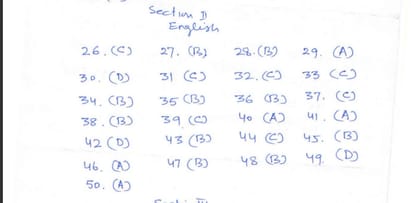 Section II
English
26. (C) 27. (B) 28. (B) 29. (A)
30. (D) 31 (C) 32. (C) 33 (C)
34. (B) 35 (B) 36 (B) 37. (C)
38. (B) 39. (C) 40 (A) 41. (A)
42 (D) 43 (B) 44 (C) 45. (B)
46. (A) 47 (B) 48 (B) 49. (D)
50. (A)